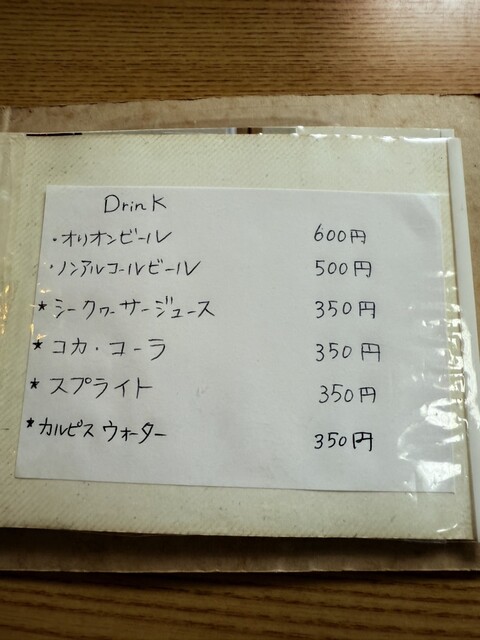 Drink
・オリオンビール 600円
・ノンアルコールビール 500円
★シークヮーサージュース 350円
★コカ・コーラ 350円
★スプライト 350円
★カルピスウォーター 350円